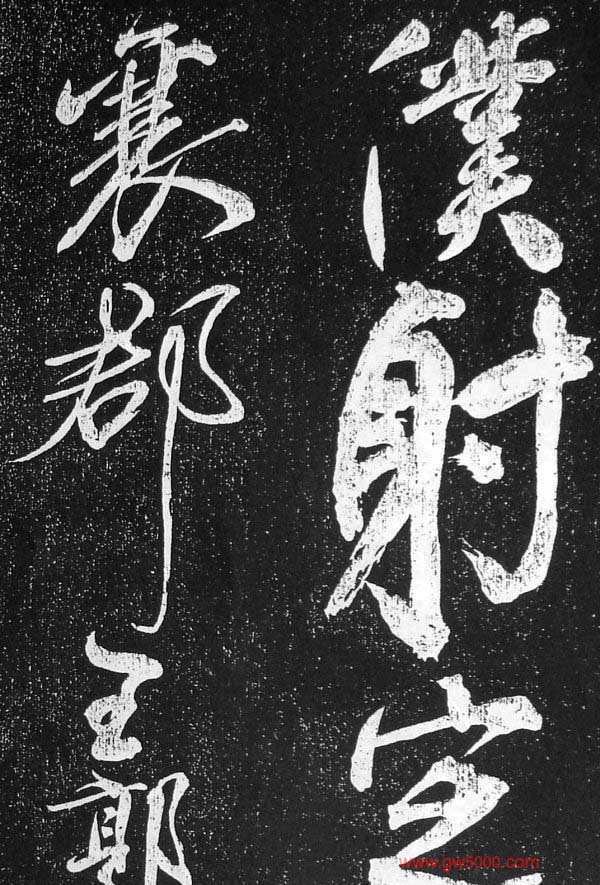 僕射定
襄郡王郭
www.gw5000.com